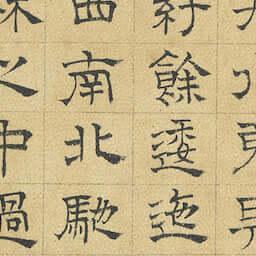 紆餘逶迤
西南北馳
林之中過